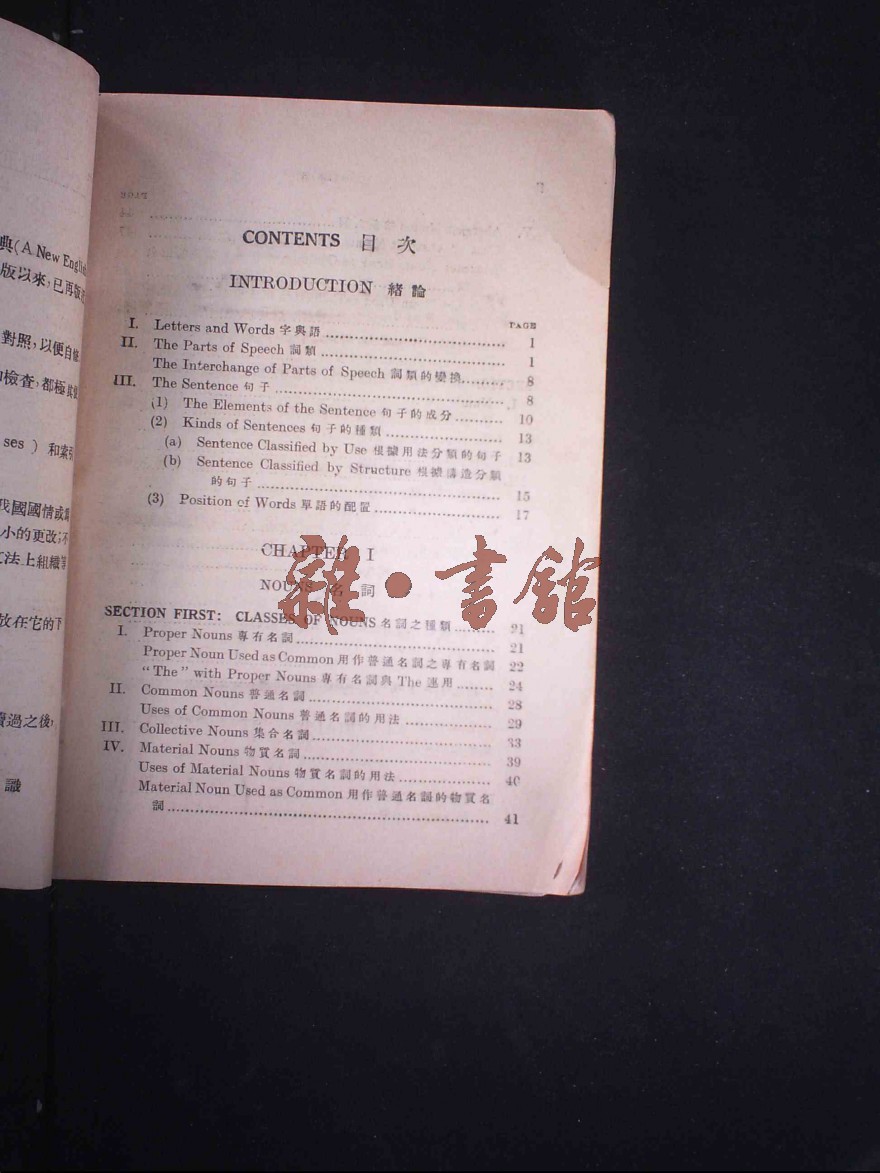 典(A New English
版以來,已再版
對照,以便自修
檢查,都極其
ses ) 和索引
我國國情或
小的更改;不
文法上組織等
放在它的下
讀過之後,
識
PAGE
CONTENTS 目次
INTRODUCTION 緒論
PAGE
I. Letters and Words 字與語 1
II. The Parts of Speech 詞類 1
The Interchange of Parts of Speech 詞類的變換 8
III. The Sentence 句子 8
(1) The Elements of the Sentence 句子的成分 10
(2) Kinds of Sentences 句子的種類 13
(a) Sentence Classified by Use 根據用法分類的句子 13
(b) Sentence Classified by Structure 根據構造分類
的句子 15
(3) Position of Words 單語的配置 17
CHAPTER I
NOUNS 名詞
雜·書館
SECTION FIRST: CLASSES OF NOUNS 名詞之種類 21
I. Proper Nouns 專有名詞 21
Proper Noun Used as Common 用作普通名詞之專有名詞 22
"The" with Proper Nouns 專有名詞與 The 連用 24
II. Common Nouns 普通名詞 28
Uses of Common Nouns 普通名詞的用法 29
III. Collective Nouns 集合名詞 33
IV. Material Nouns 物質名詞 39
Uses of Material Nouns 物質名詞的用法 40
Material Noun Used as Common 用作普通名詞的物質名
詞 41